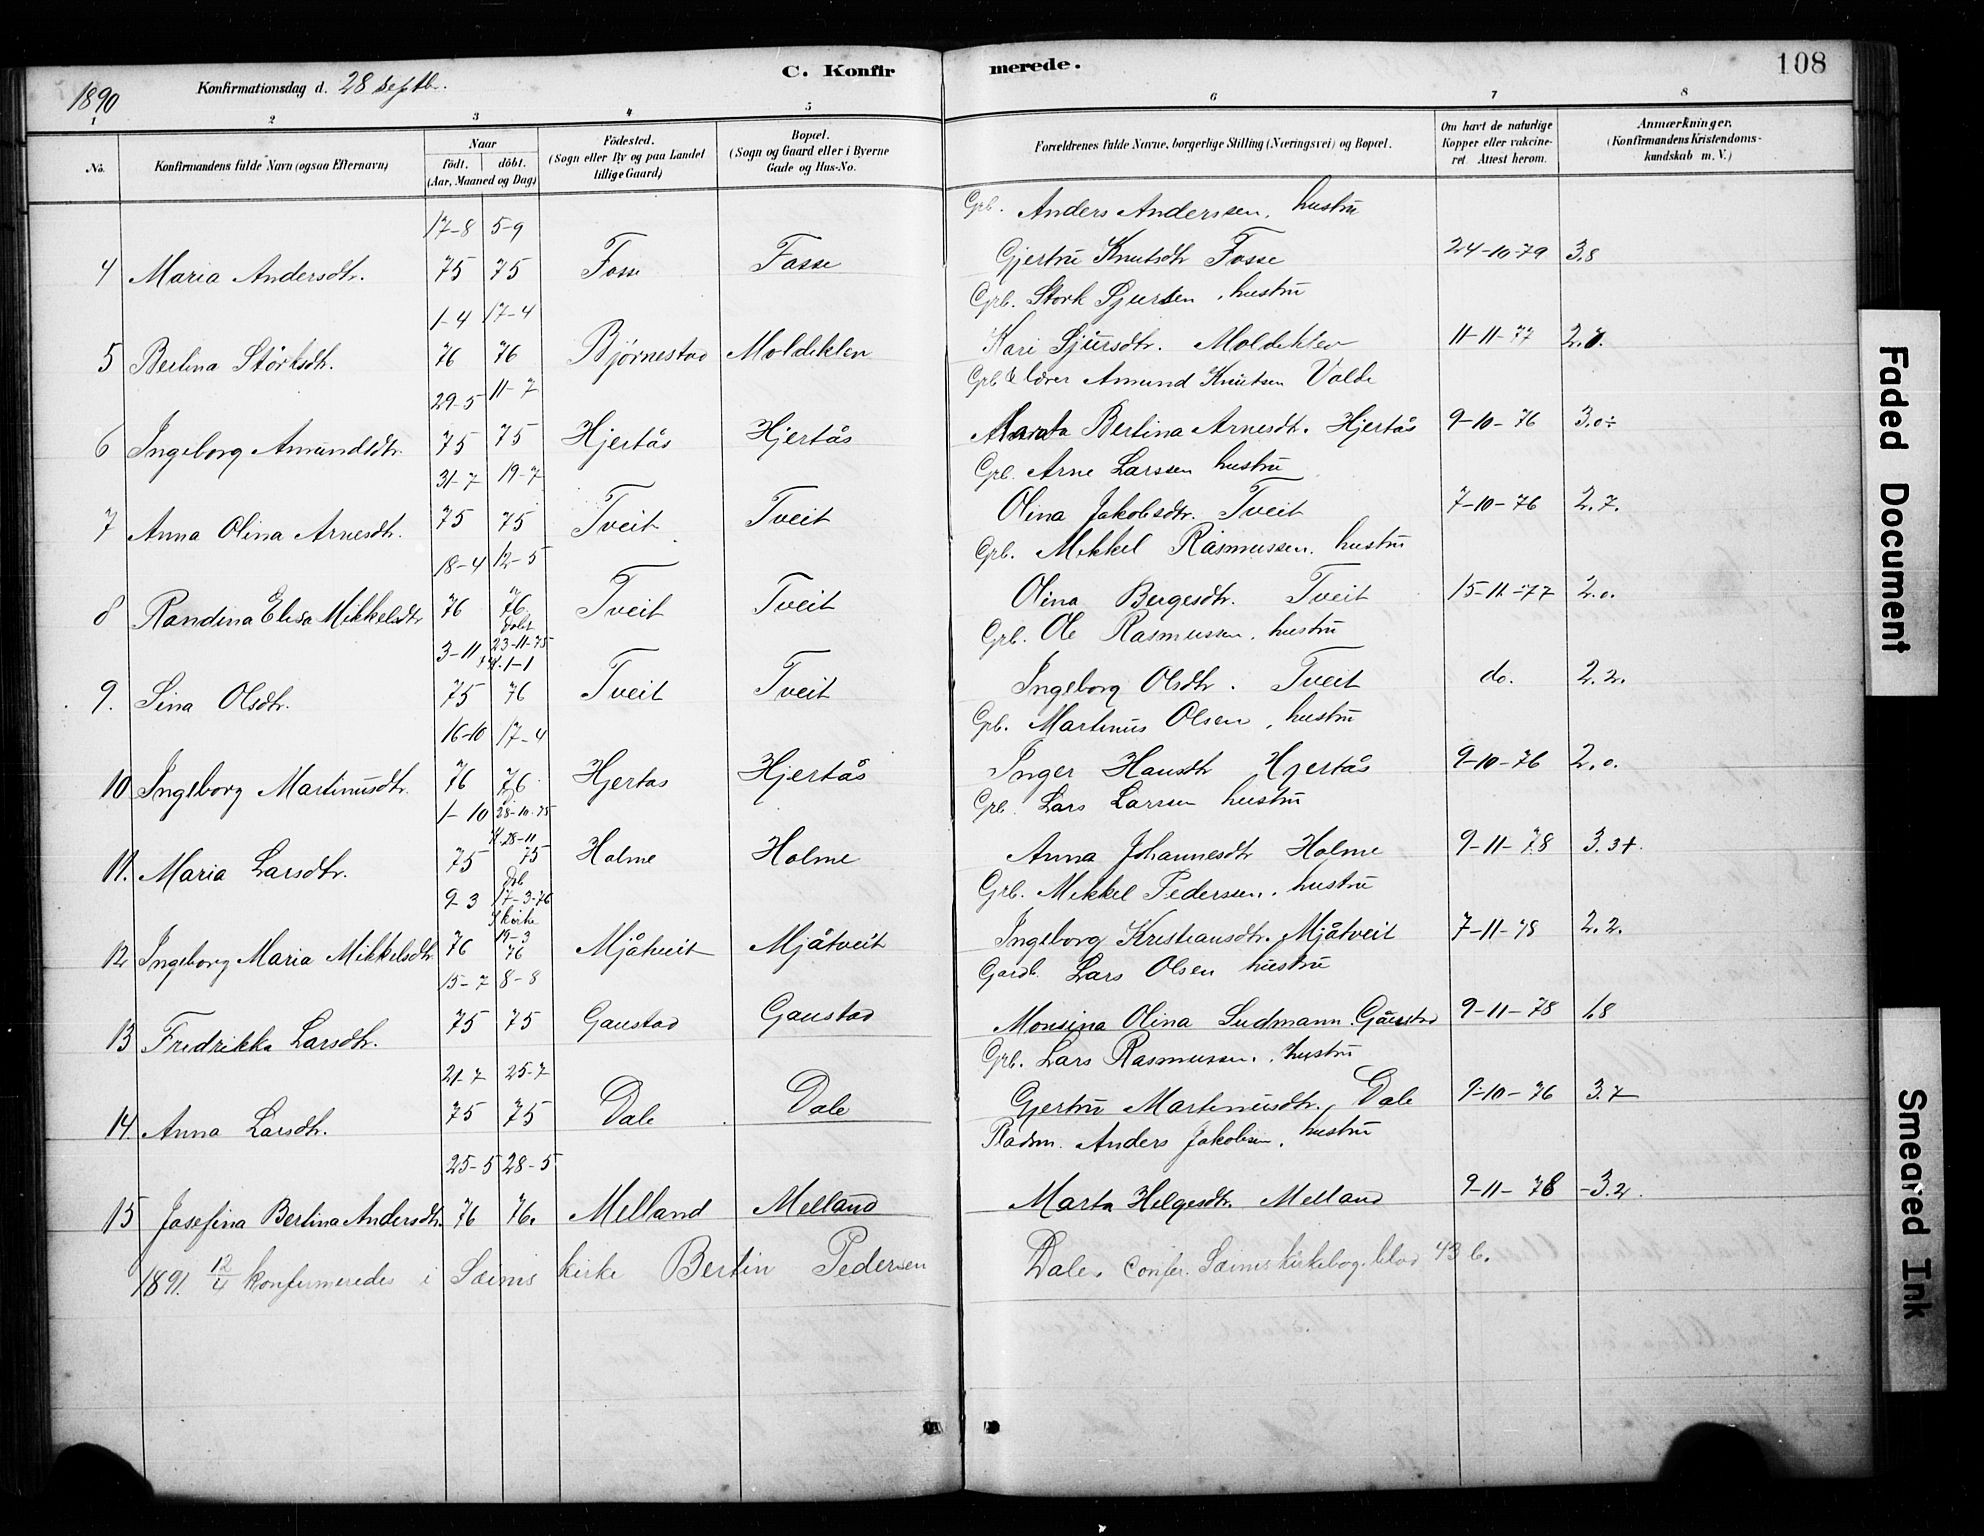 1890 Konfirmationsdag d. 28 Septb. C. Konfirmerede. 108
1 2 3 4 5 6 7 8
No. Konfirmandens fulde Navn (ogsaa Efternavn) Naar født. døbt. (Aar, Maaned og Dag) Fødested. (Sogn eller By og paa Landet tillige Gaard) Bopæl. (Sogn og Gaard eller i Byerne Gade og Hus-No. Forældrenes fulde Navne, borgerlige Stilling (Næringsvei) og Bopæl. Om havt de naturlige Kopper eller vakcineret. Attest herom. Anmærkninger, (Konfirmandens Kristendomskundskab m. V.)
17-8 5-9 Grb. Anders Anderssen, hustru
4 Maria Andersdtr. 75 75 Fosse Fosse Gjertru Knutsdtr Fosse 24-10-79 3.8
1-4 17-4 Grb. Stork Sjursen, hustru
5 Berlina Störksdtr. 76 76 Bjørnestad Moldeklev Kari Sjursdtr. Moldeklev 11-11-77 2.7.
29-5 11-7 Grb & Lærer Amund Knutsen Valde
6 Ingeborg Amundsdtr. 75 75 Hjertås Hjertås Marta Berlina Arnesdtr. Hjertås 9-10-76 3.0÷
31-7 19-7 Grb. Arne Larssen hustru
7 Anna Olina Arnesdtr. 75 75 Tveit Tveit Olina Jakobsdtr. Tveit 7-10-76 2.7.
18-4 12-5 Grb. Mikkel Rasmussen, hustru
8 Randina Elisa Mikkelsdtr 76 76 Tveit Tveit Olina Bergesdtr. Tveit 15-11-77 2.0.
3-11 23-11-75 1-1 Grb. Ole Rasmussen, hustru
9. Sina Olsdtr. 75 76 Tveit Tveit Ingeborg Olsdtr. Tveit do. 2.2.
16-10 17-4 Grb. Martinus Olsen, hustru
10 Ingeborg Martinusdtr. 76 76 Hjertas Hjertås Inger Hansdtr Hjertås 9-10-76 2.0.
1-10 28-10-75 Grb. Lars Larssen hustru
K. 28-11
11. Maria Larsdtr. 75 75 Holme Holme Anna Johannesdtr Holme 9-11-78 3.3+.
9-3 17-3-76 Grb. Mikkel Pederssen, hustru
kirke 19-3
12 Ingeborg Maria Mikkelsdtr 76 76 Mjåtveit Mjåtveit Ingeborg Kristiansdtr. Mjåtveit 7-11-78 2.2.
15-7 8-8 Gardb. Lars Olsen hustru
13 Fredrikka Larsdtr. 75 75 Gaustad Gaustad Monsina Olina Sudmann Gaustad 9-11-78 1.8
21-7 25-7 Grb. Lars Rasmussen, hustru
14. Anna Larsdtr. 75 75 Dale Dale Gjertru Martinusdtr. Dale 9-10-76 3.7
25-5 28-5 Pladsm. Anders Jakobsen, hustru
15 Josefina Berlina Andersdtr. 76 76. Melland Melland Marta Helgesdtr. Melland 9-11-78 -3.2.
1891. 12/4 konfirmeredes i Sæims kirke Bertin Pedersen Dale. Confer. Sæims kirkebog blad 43 b.
Faded Document
Smeared Ink